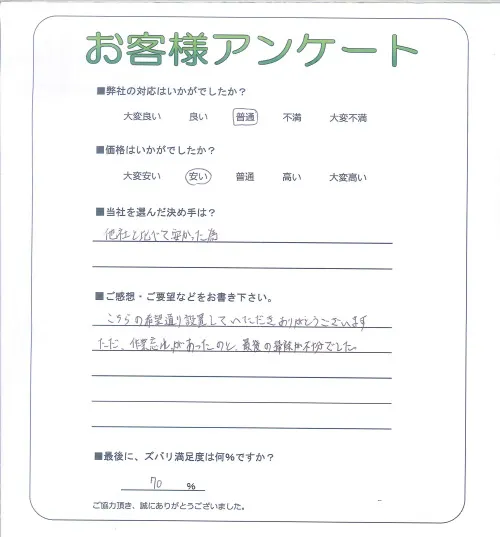 お客様アンケート
■弊社の対応はいかがでしたか?
大変良い 良い 普通 不満 大変不満
■価格はいかがでしたか?
大変安い 安い 普通 高い 大変高い
■当社を選んだ決め手は?
他社と比べて安かった為
■ご感想・ご要望などをお書き下さい。
こちらの希望通り設置していただきありがとうございます
ただ、作業忘れがあったのと、最後の掃除が不十分でした。
■最後に、ズバリ満足度は何%ですか?
70 %
ご協力頂き、誠にありがとうございました。